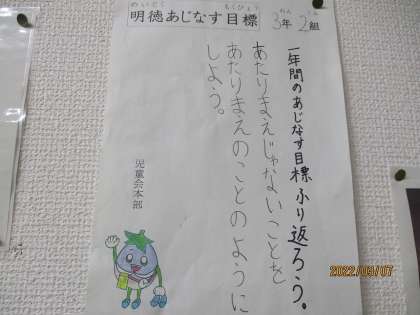 めいとく もくひょう
明徳あじなす目標
ねん くみ
3年 2組
一年間のあじなす目標ふり返ろう。
あたりまえじゃないことを
あたりまえのことのように
しよう。
児童会本部
2022/09/07